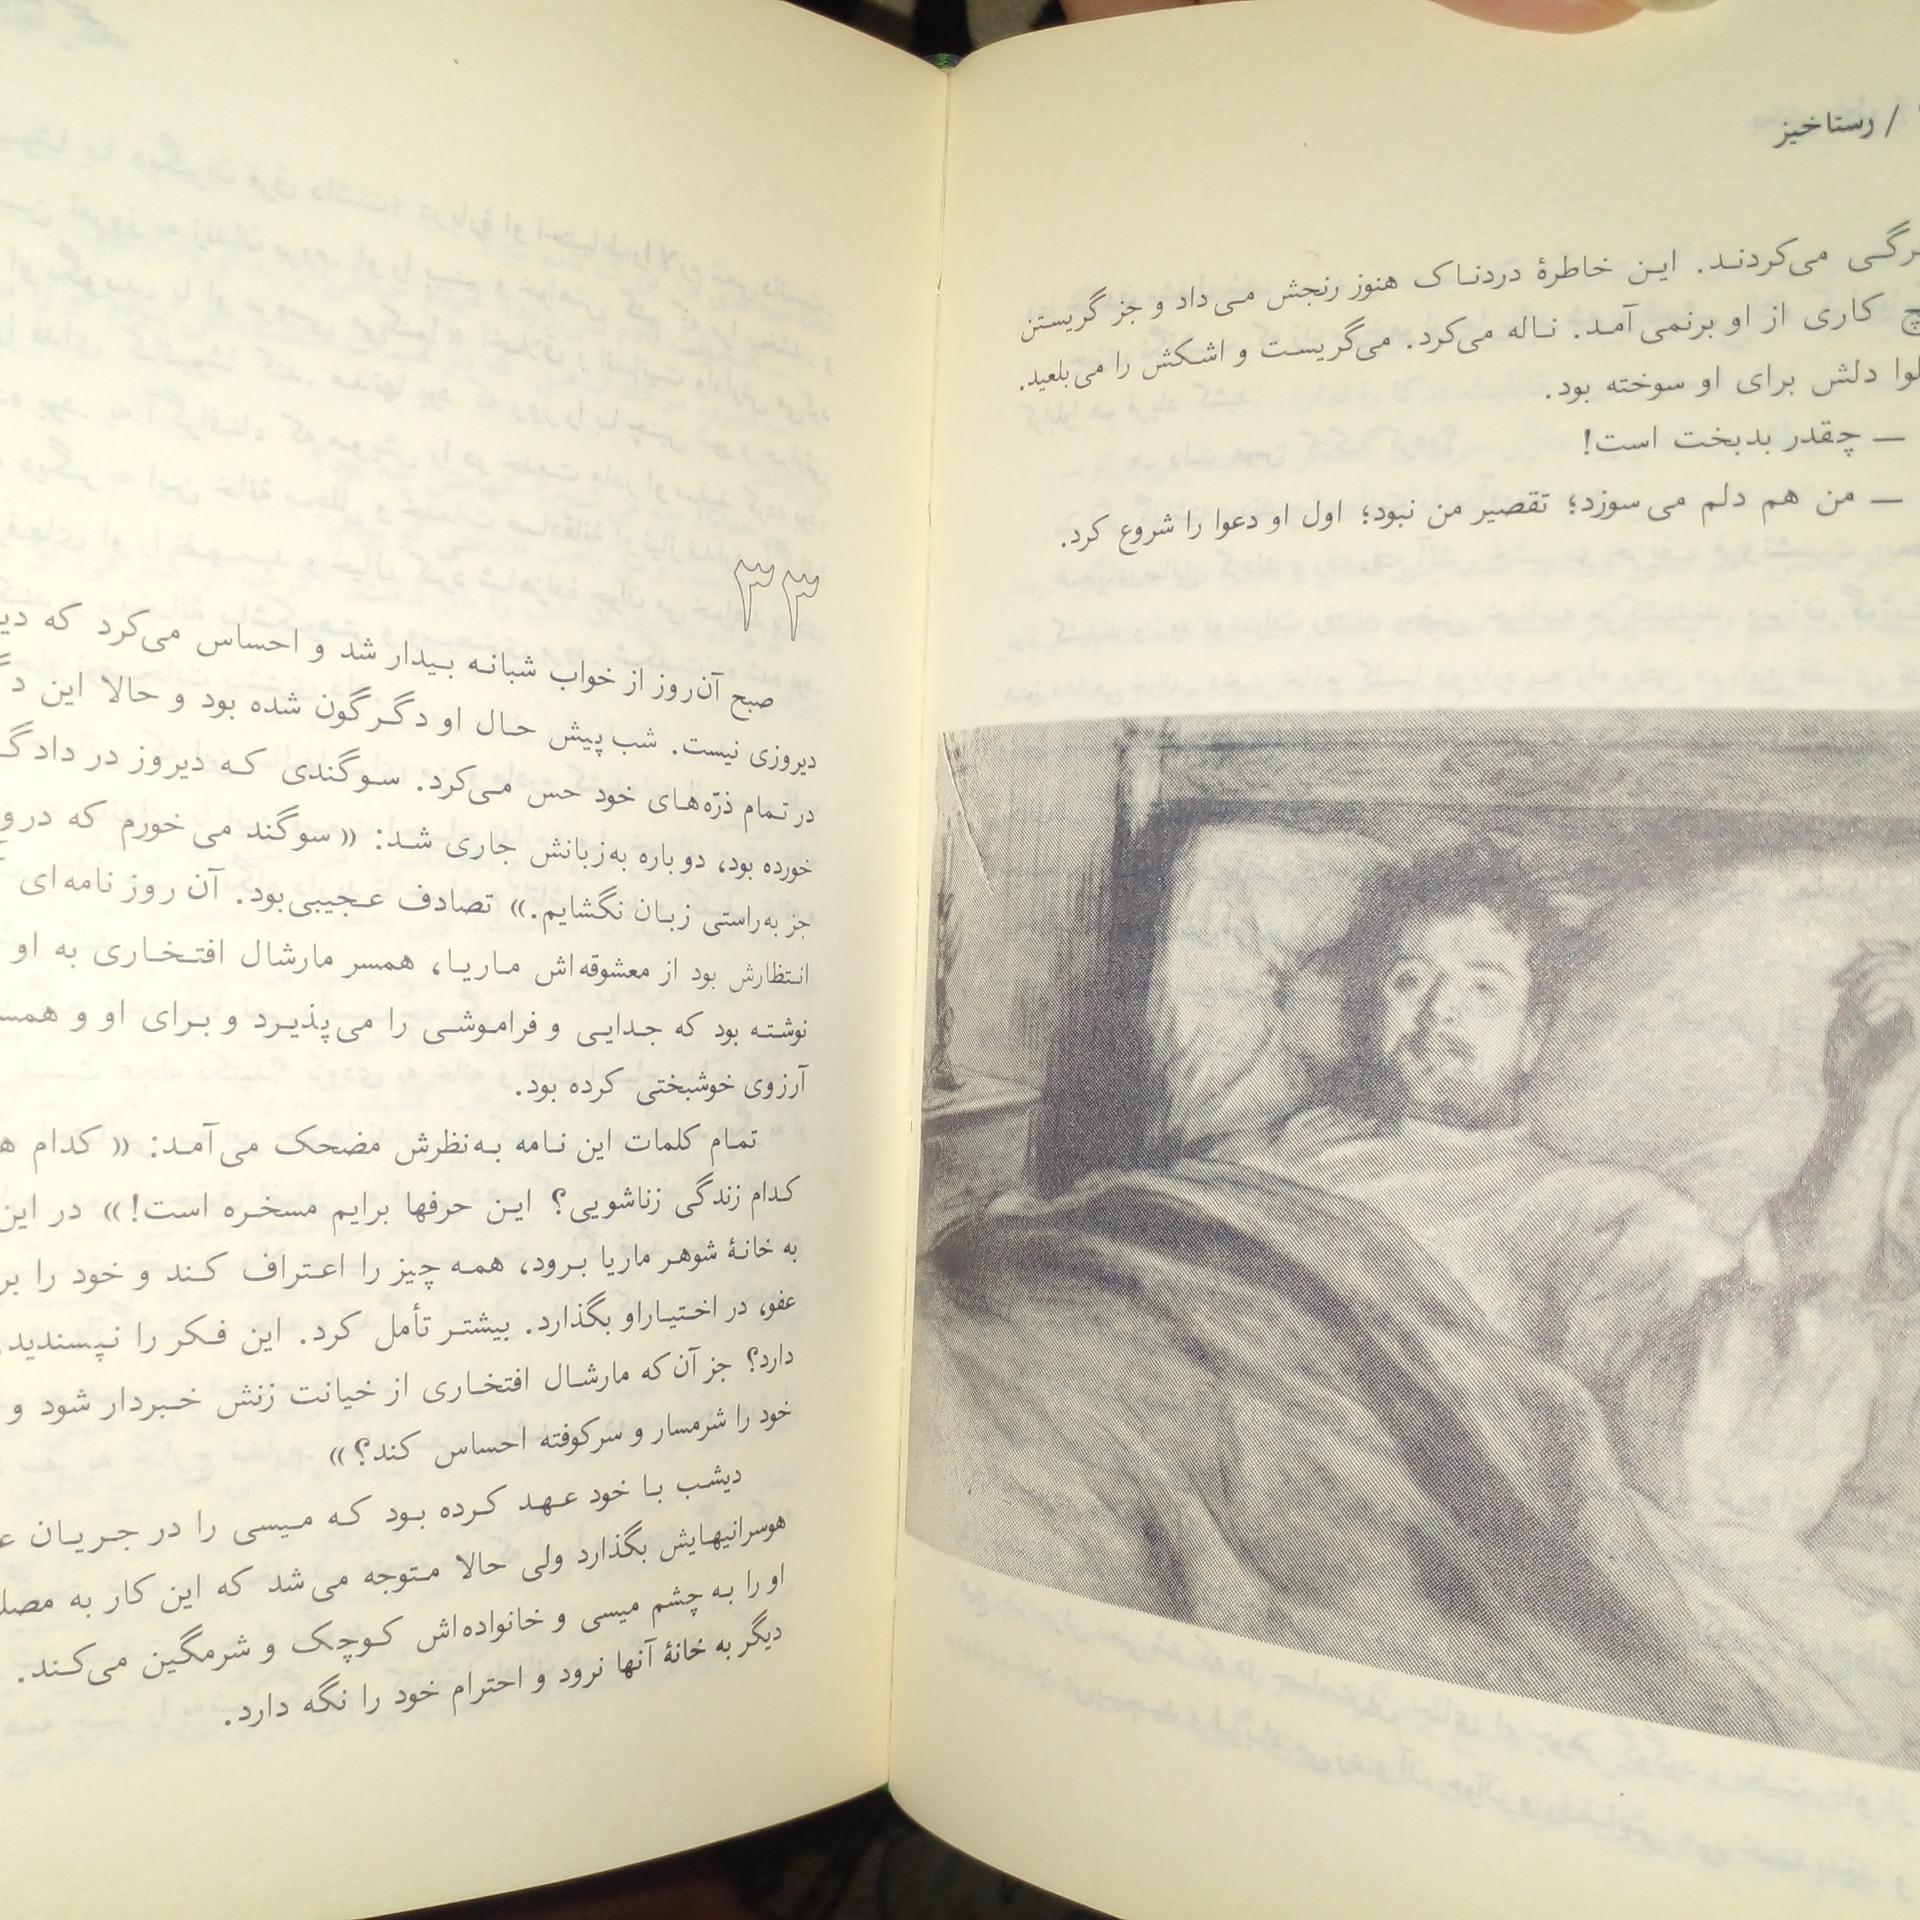 / رستاخیز
می‌کردند. این خاطرهٔ دردناک هنوز رنجش می‌داد و جز گریستن
کاری از او برنمی‌آمد. ناله می‌کرد. می‌گریست و اشکش را می‌بلعید.
دلش برای او سوخته بود.
— چقدر بدبخت است!
— من هم دلم می‌سوزد؛ تقصیر من نبود؛ اول او دعوا را شروع کرد.
۳۳
صبح آن‌روز از خواب شبانه بیدار شد و احساس می‌کرد که
دیروزی نیست. شب پیش حال او دگرگون شده بود و حالا این
در تمام ذرّه‌های خود حس می‌کرد. سوگندی که دیروز در
خورده بود، دوباره به‌زبانش جاری شد: «سوگند می‌خورم که
جز به‌راستی زبان نگشایم.» تصادف عجیبی‌بود. آن روز نامه‌ای
انتظارش بود از معشوقه‌اش ماریا، همسر مارشال افتخاری به او
نوشته بود که جدایی و فراموشی را می‌پذیرد و برای او و
آرزوی خوشبختی کرده بود.
تمام کلمات این نامه به‌نظرش مضحک می‌آمد: «کدام
کدام زندگی زناشویی؟ این حرفها برایم مسخره است!» در این
به خانهٔ شوهر ماریا برود، همه چیز را اعتراف کند و خود را
عفو، در اختیاراو بگذارد. بیشتر تأمل کرد. این فکر را نپسندید
دارد؟ جز آن‌که مارشال افتخاری از خیانت زنش خبردار شود و
خود را شرمسار و سرکوفته احساس کند؟»
دیشب با خود عهد کرده بود که میسی را در جریان
هوسرانیهایش بگذارد ولی حالا متوجه می‌شد که این کار به
او را به چشم میسی و خانواده‌اش کوچک و شرمگین می‌کند.
دیگر به خانهٔ آنها نرود و احترام خود را نگه دارد.